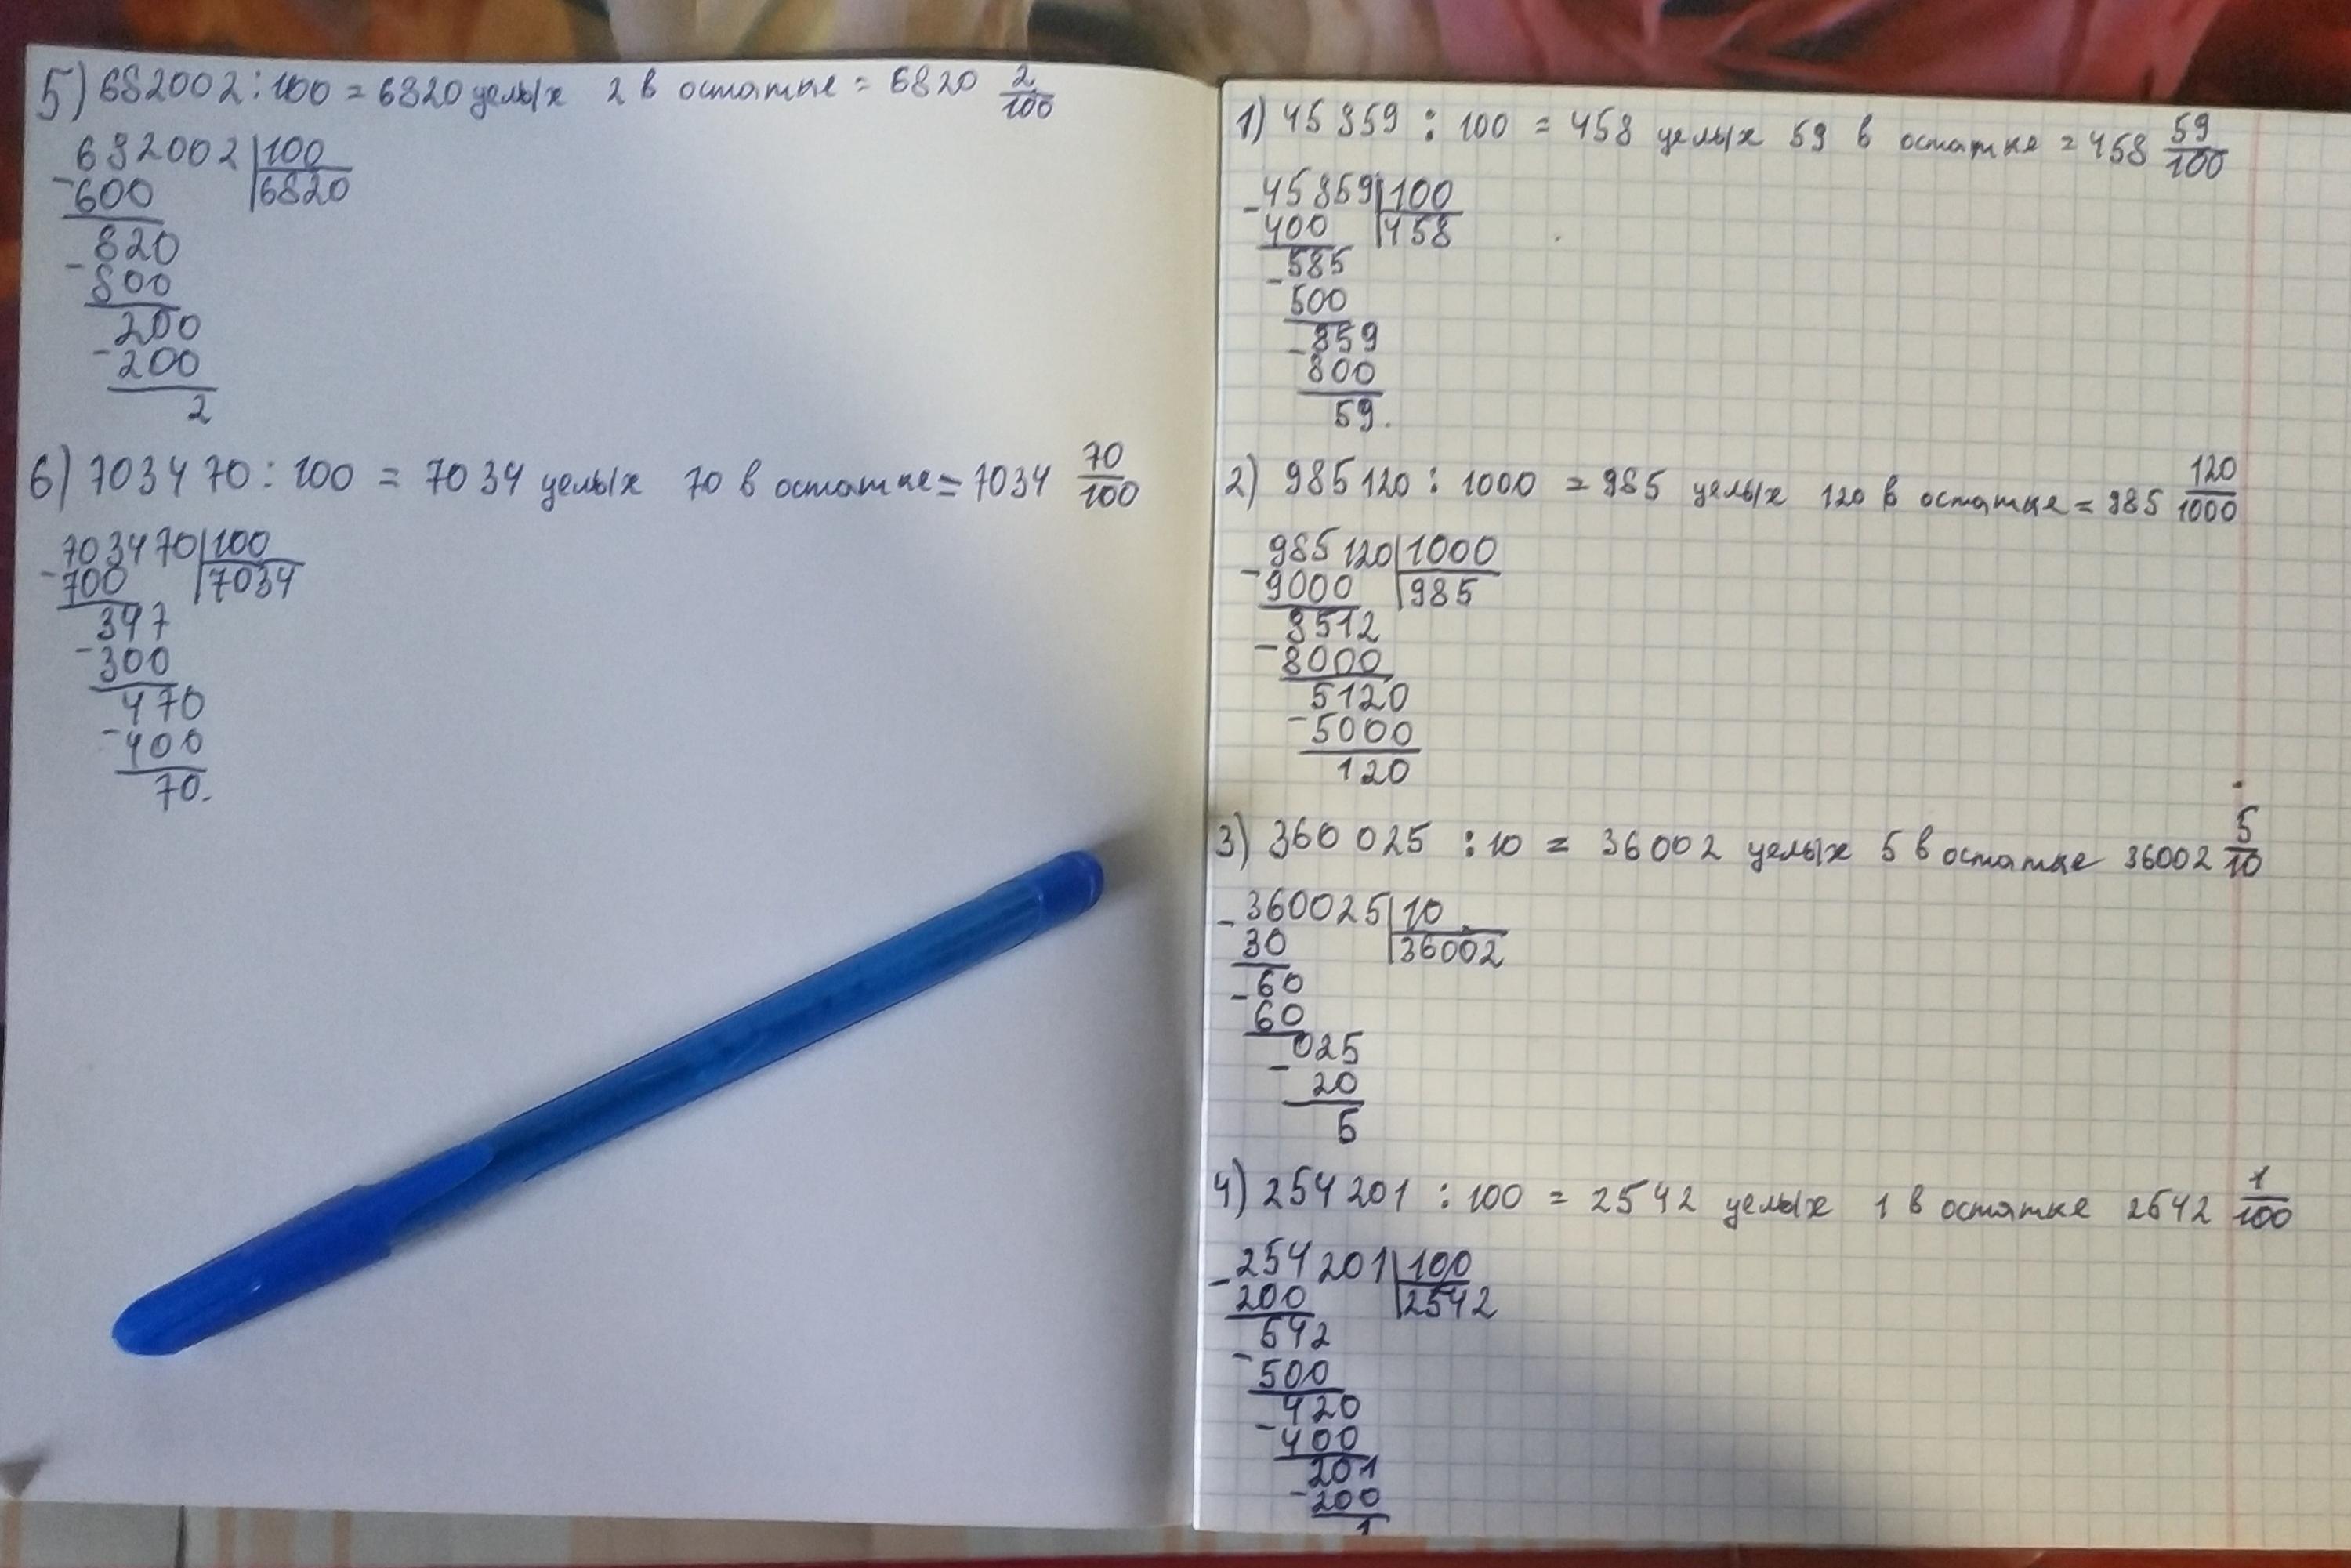 5) 682002 : 100 = 6820 целых 2 в остатке = 6820 2/100
682002 | 100
-600 | 6820
820
-800
200
-200
2
6) 703470 : 100 = 7034 целых 70 в остатке = 7034 70/100
703470 | 100
-700 | 7034
347
-300
470
-400
70.
1) 45859 : 100 = 458 целых 59 в остатке = 458 59/100
-45859 | 100
400 | 458
-585
500
-859
800
59.
2) 985120 : 1000 = 985 целых 120 в остатке = 985 120/1000
985120 | 1000
-9000 | 985
8512
-8000
5120
-5000
120
3) 360025 : 10 = 36002 целых 5 в остатке 36002 5/10
-360025 | 10
30 | 36002
-60
60
025
-20
5
4) 254201 : 100 = 2542 целых 1 в остатке 2542 1/100
-254201 | 100
200 | 2542
542
-500
420
-400
201
-200
1